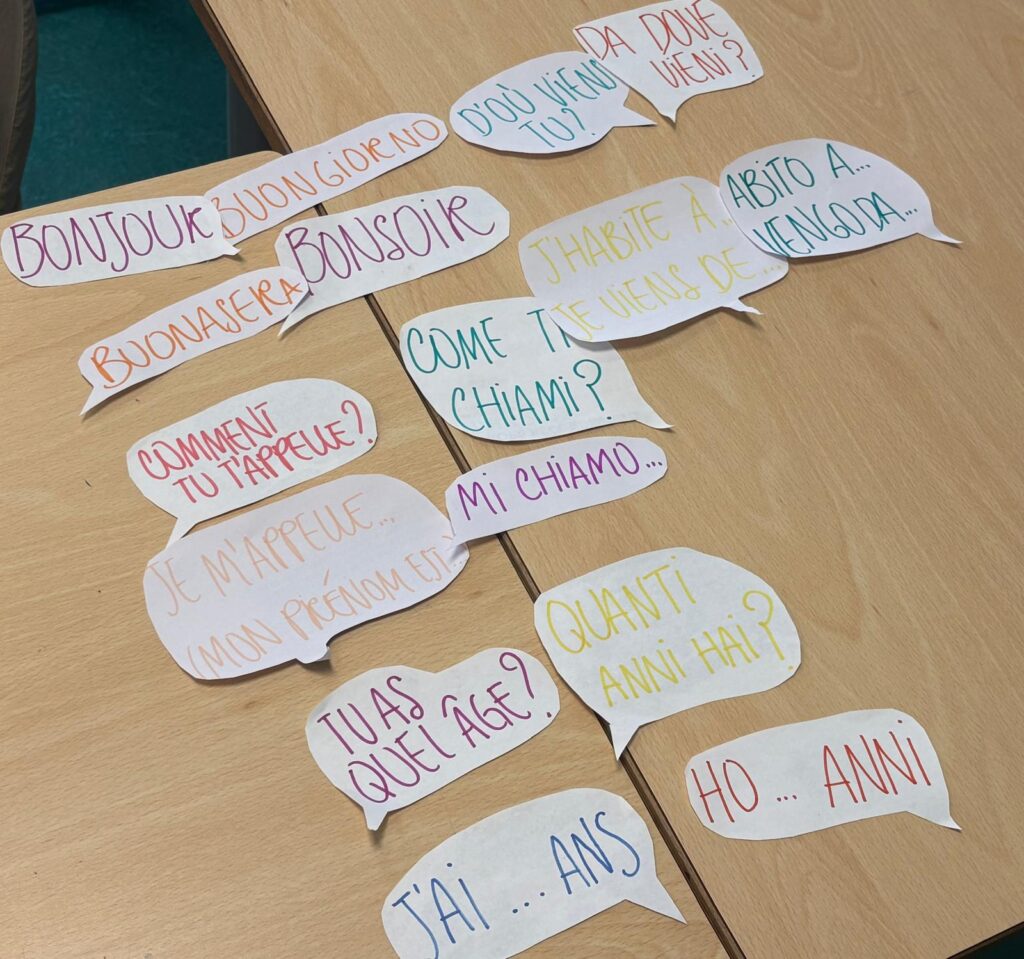 DA DOVE
VIENI?
D'OÙ VIENS
TU?
BUONGIORNO
BONJOUR
BONSOIR
ABITO A...
VENGO DA...
J'HABITE À...
JE VIENS DE...
BUONASERA
COME TI
CHIAMI?
COMMENT
TU T'APPELLE?
MI CHIAMO...
JE M'APPELLE...
(MON PRÉNOM EST
QUANTI
ANNI HAI?
TU AS
QUEL ÂGE?
HO... ANNI
J'AI ... ANS